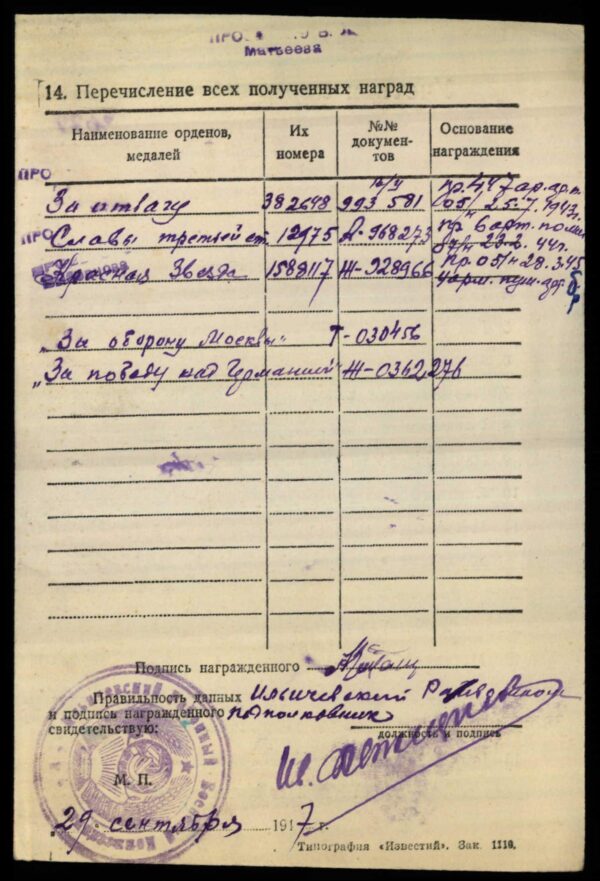 Матвеева
14. Перечисление всех полученных наград
Наименование орденов, медалей
Их номера
№№ документов
Основание награждения
ПРО
За отвагу 382648 993 581 пр. 447 ар. арт. п
от 25.7.1943г.
ПРО
Славы третьей ст. 12975 А-968273 пр 6 арт.
23.2.44г.
Красная Звезда 1588117 Ж-928966 пр. 051н 28.3.45
"За оборону Москвы" Т-030456
"За победу над Германией" Ж-0362,276
Подпись награжденного
Правильность данных Ильичевский
и подпись награжденного подполковник
свидетельствую:
должность и подпись
М. П.
29 сентября 1947 г.
Типография «Известий». Зак. 1110.